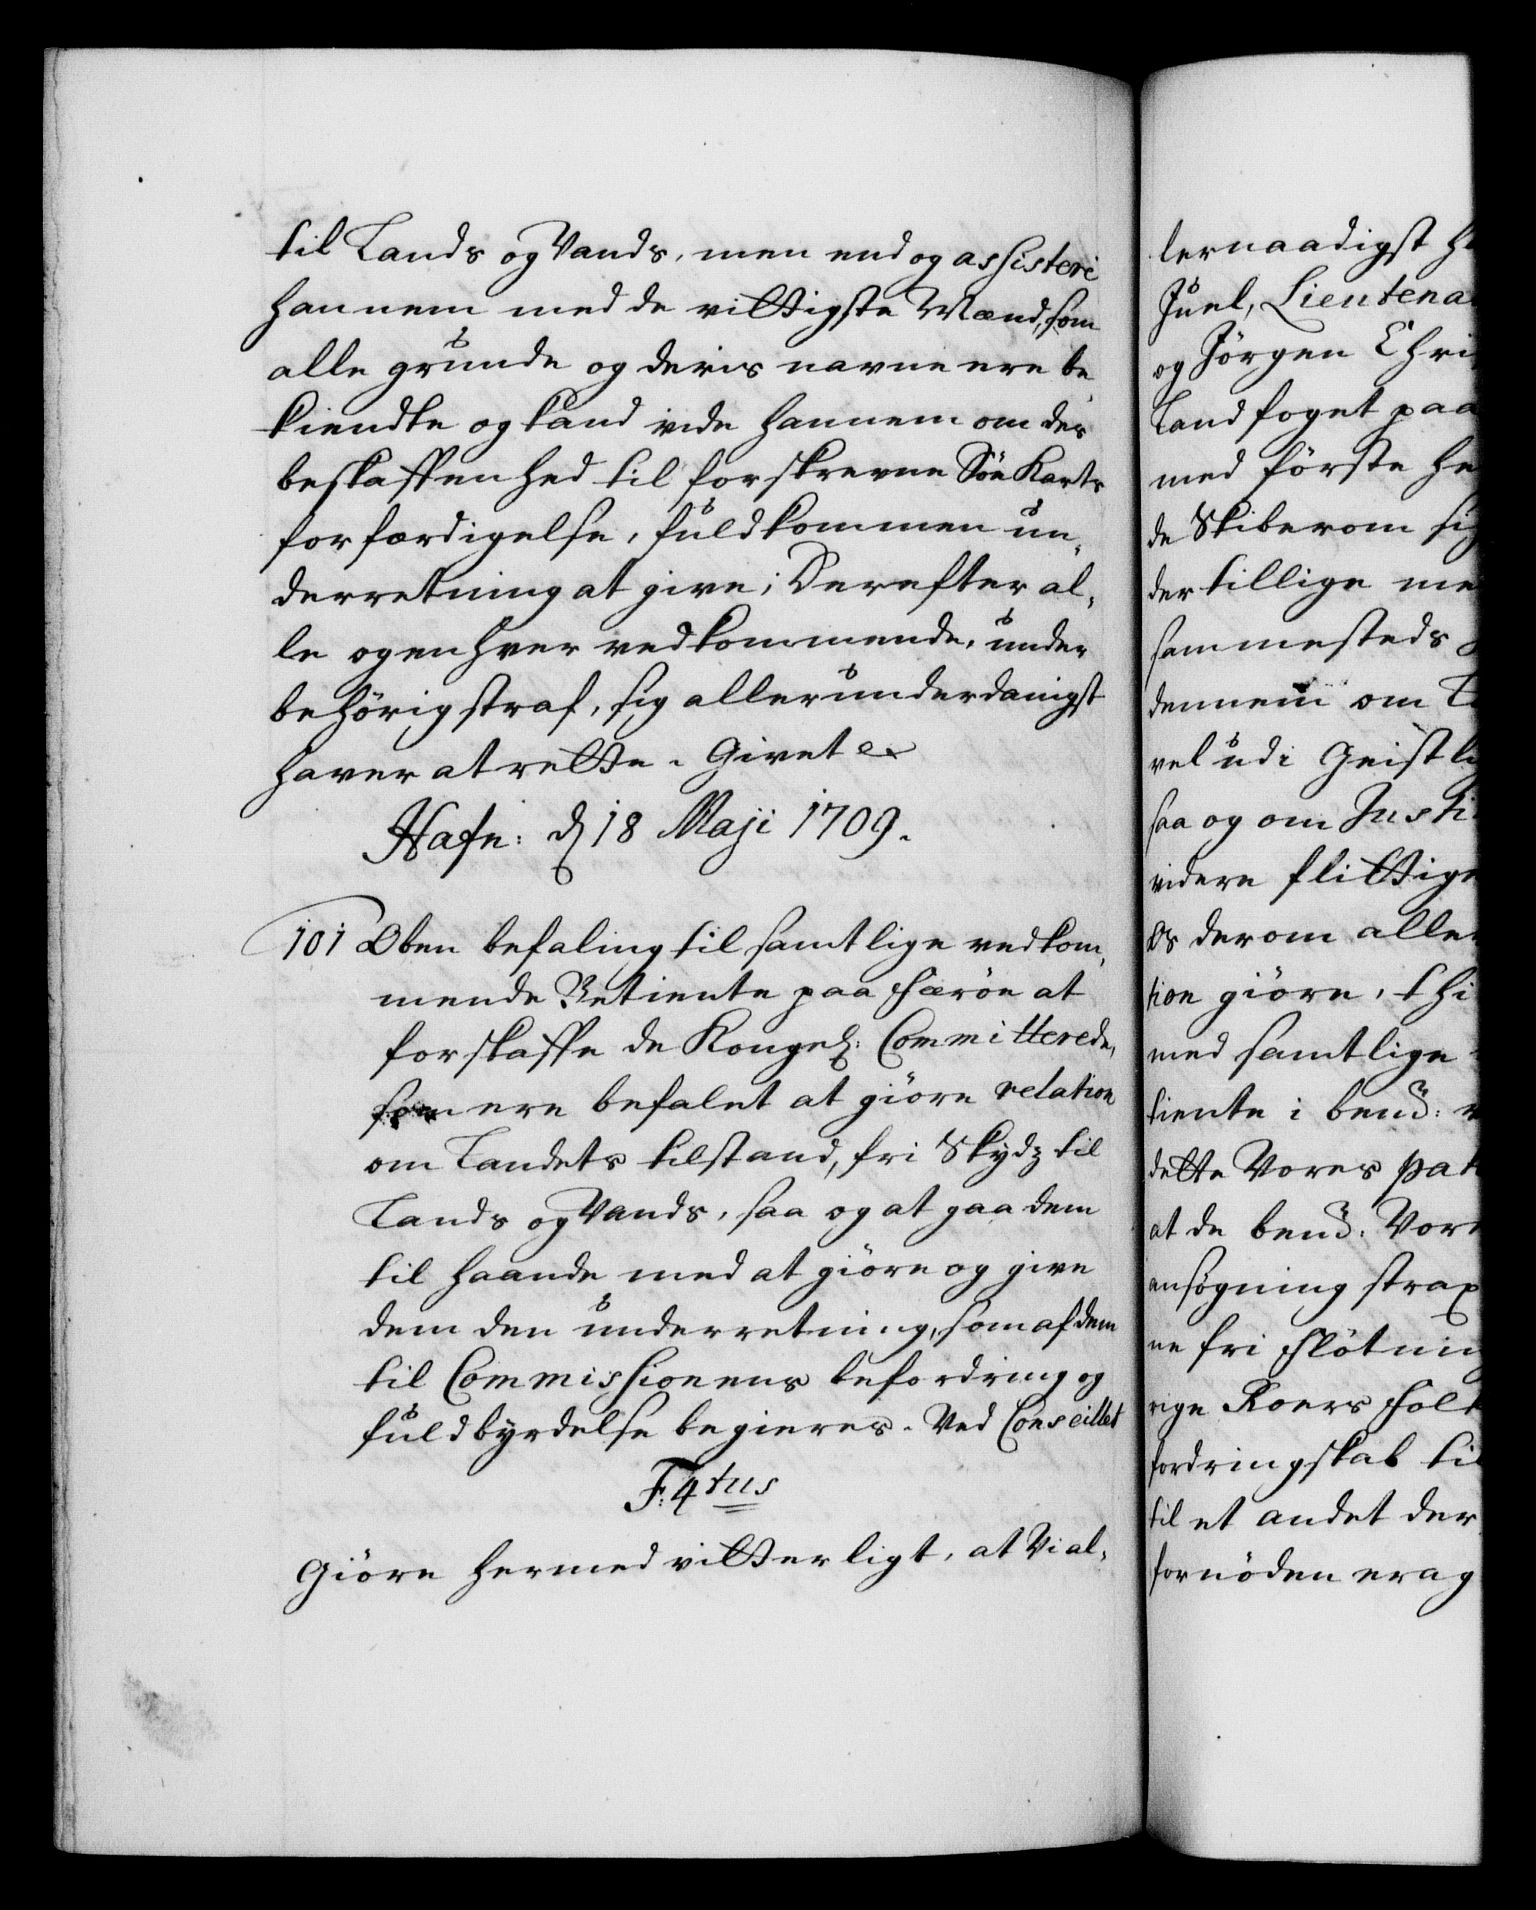 til Lands og Vands, men end og assistere
hannem med de vittigste Mænd, som
alle grunde og deris navne ere be-
kiendte og kand vide hannem om des
beskaffenhed til forskrevne Söe Karts
forfærdigelse, fuldkommen un-
derretning at give; Derefter al-
le og enhver vedkommende, under
behörig straf, sig allerunderdanigst
haver at rette. Givet etc
Hafn: d 18 Maji 1709.
101 Oben befaling til samtlige vedkom-
mende Betiente paa Færöe at
forskaffe de Kongel: Committerede,
som ere befalet at giöre relation
om Landets tilstand, fri Skydz til
Lands og Vands, saa og at gaa dem
til haande med at giöre og give
dem den underretning, som af dem
til Commissionens befordring og
fuldbyrdelse begieres. Ved Conseillet
F: 4tus
Giöre hermed vitterligt, at Vi al-
lernaadigst
Juel, Lieutena
og Jörgen Chri
Landfoget paa
med förste
de Skiberom sig
der tillige me
sammesteds
dennem om
vel udi Geistli
saa og om Justi
videre flittige
Os derom aller
tion giöre, thi
med samtlige
tiente i bend:
dette Vores pat
at de bend: Vor
ansögning strax
ne fri Flötnin
rige Roers Folk
fordringskab til
til et andet der
fornöden erag